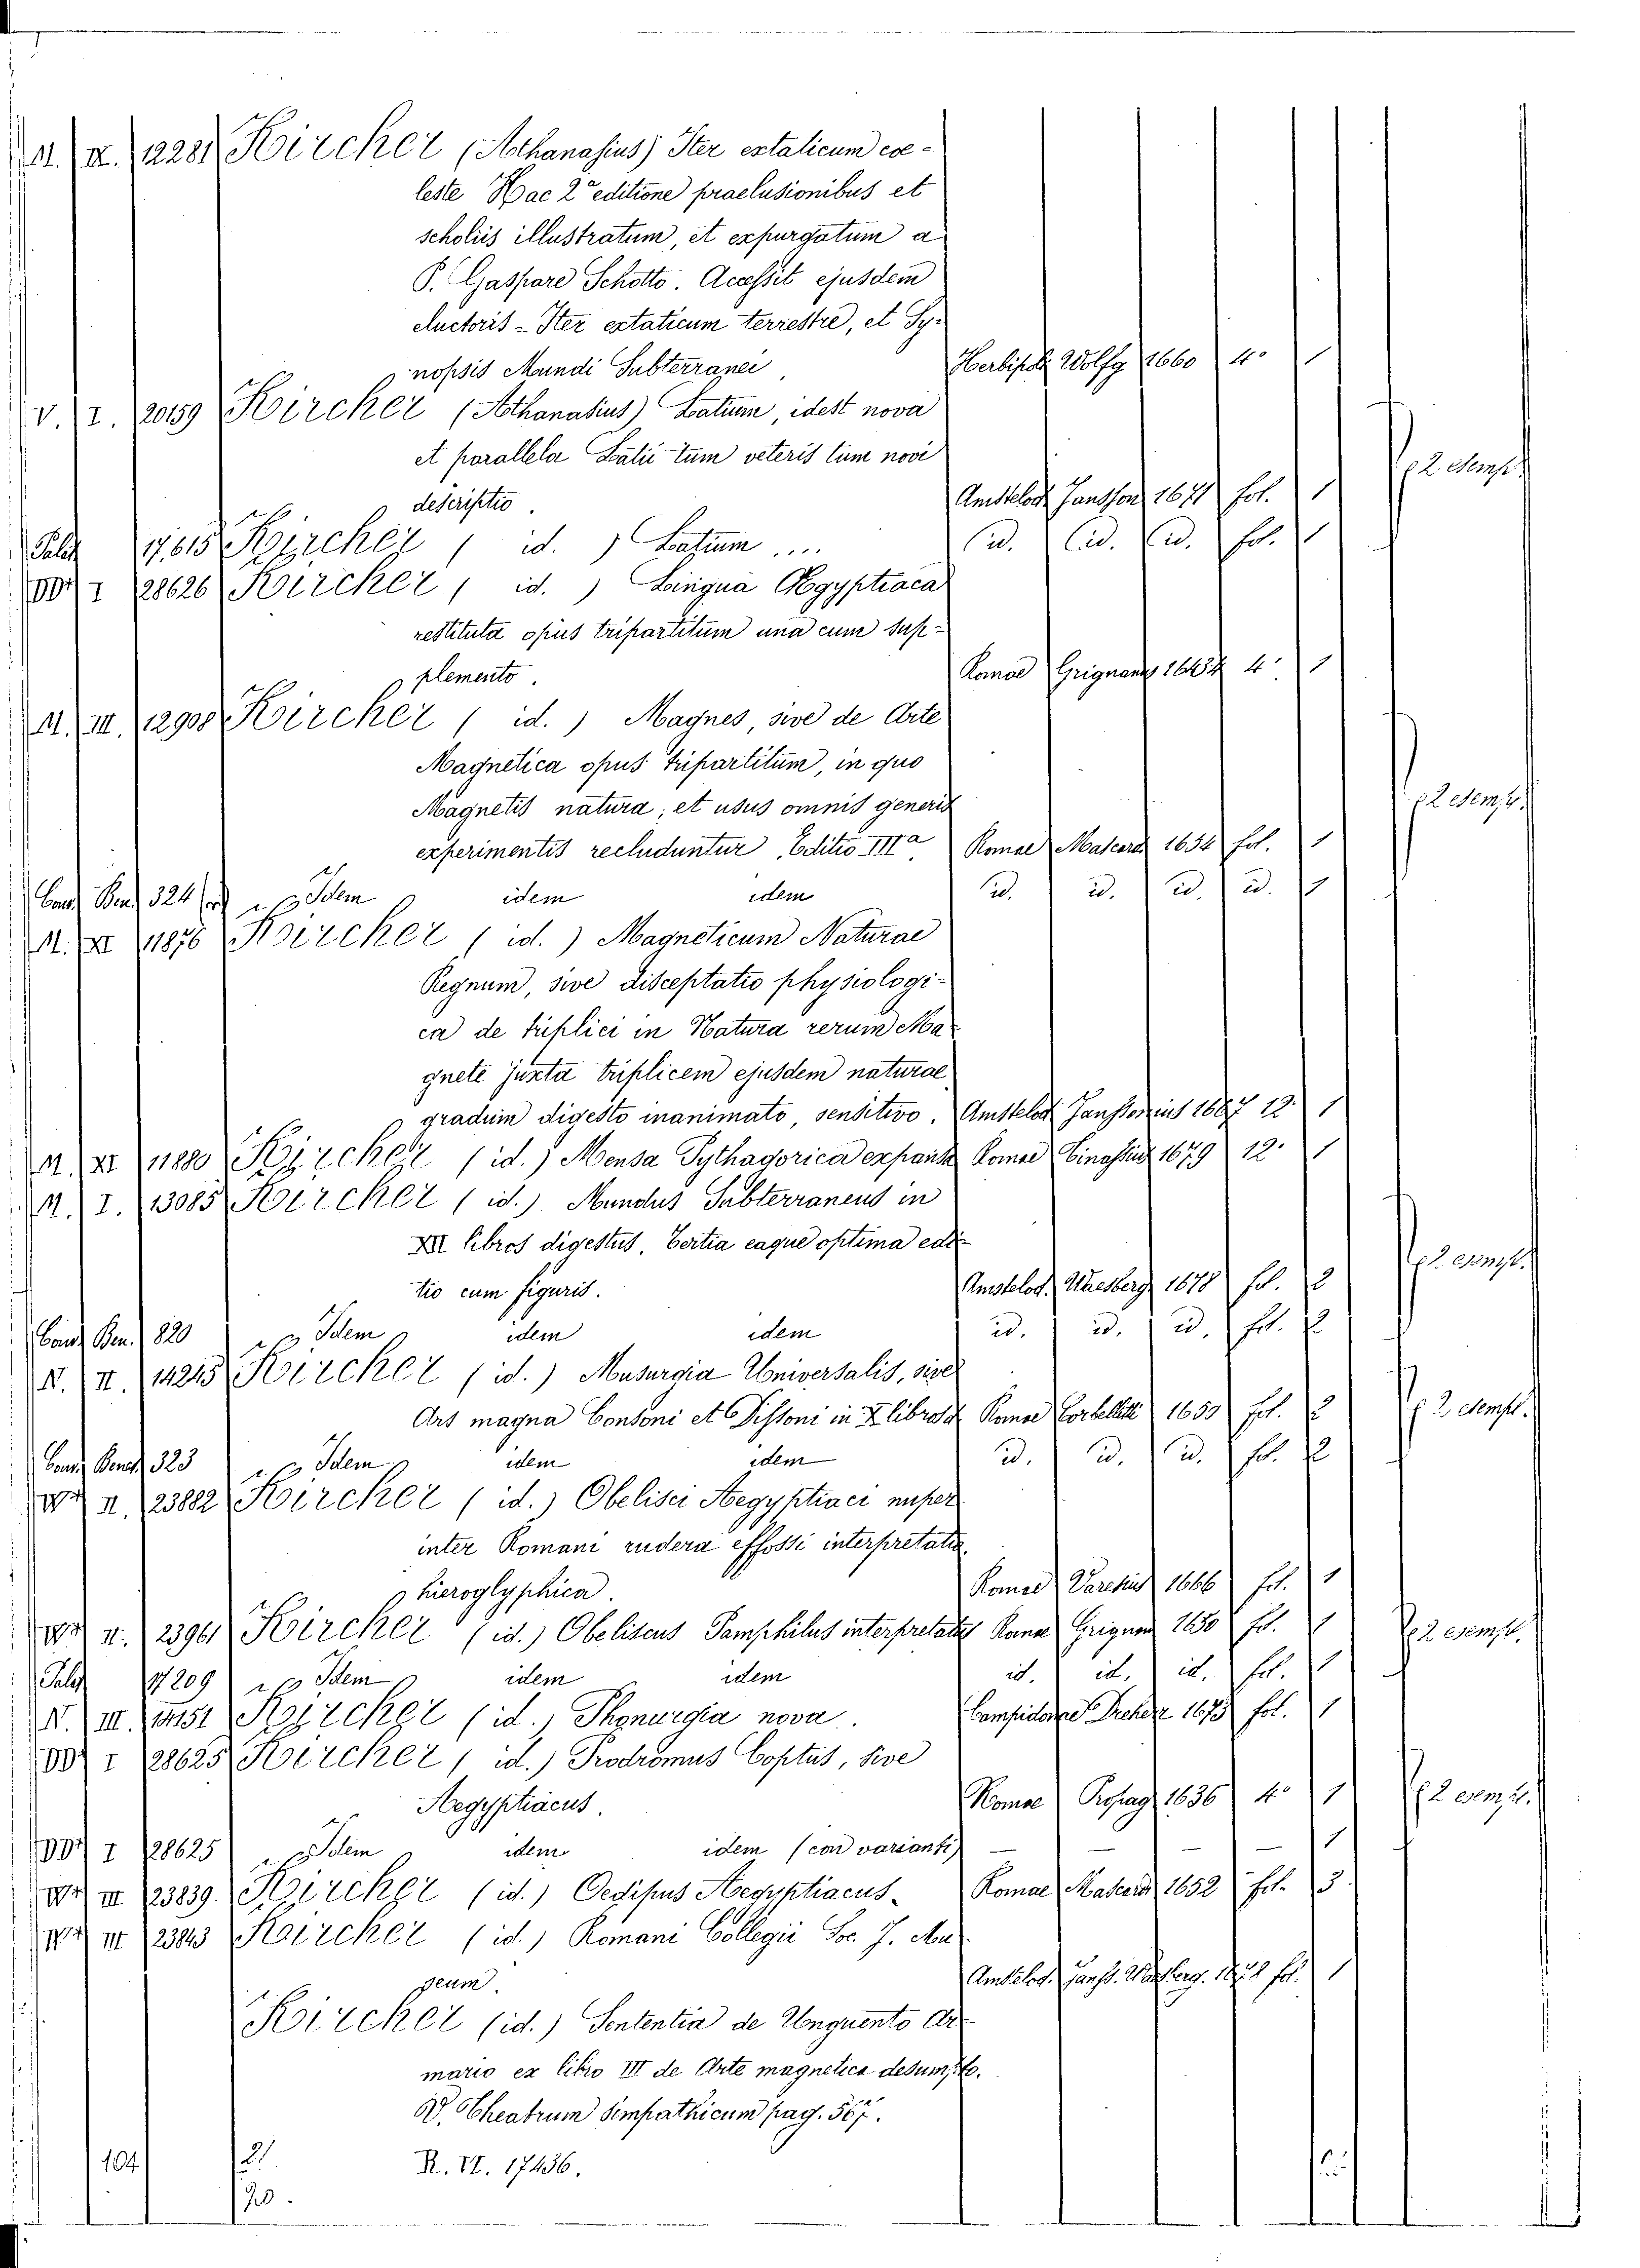 M. II. 12281 Kircher (Athanasius) Iter extaticum coe-
leste Hac 2ª editione praelusionibus et
scholiis illustratum, et expurgatum a
P. Gaspare Schotto. Accessit ejusdem
Auctoris - Iter extaticum terrestre, et Sy-
nopsis Mundi Subterranei Herbipoli Wolfg 1660 4° 1
V. I. 20159 Kircher (Athanasius) Latium, idest nova
et parallela Latii tum veteris tum novi
descriptio. Amstelod. Jansson 1671 fol. 1 2 esemp.
Palat 17.615 Kircher ( id. ) Latium .... id. id. id. fol. 1
I 28626 Kircher ( id. ) Lingua Aegyptiaca
restituta opus tripartitum una cum sup-
plemento. Romae Grignani 4° 1
M. III. 12908 Kircher ( id. ) Magnes, sive de Arte
Magnetica opus tripartitum, in quo
Magnetis natura, et usus omnis generis 2 esemp.
experimentis recluduntur Editio IIIª Romae Mascardi 1654 fol. 1
Ben. 324 Idem idem idem id. id. id. id. 1
M. XI 11876 Kircher ( id. ) Magneticum Naturae
Regnum, sive disceptatio physiologi-
ca de triplici in Natura rerum Ma-
gnete juxta triplicem ejusdem naturae
gradum digesto inanimato, sensitivo. Amstelod Janssonius 1667 12° 1
M. XI 11880 Kircher ( id. ) Mensa Pythagorica expansa Romae 1679 12° 1
M. I. 13085 Kircher ( id. ) Mundus Subterraneus in
XII libros digestus. Tertia eaque optima edi-
tio cum figuris. Amstelod. Waesberg 1678 fol. 2 2 esemp.
Ben. 820 Idem idem idem id. id. id. fol. 2
N. II. 14245 Kircher ( id. ) Musurgia Universalis, sive
Ars magna Consoni et Dissoni in X libros Romae Corbelletti 1650 fol. 2 2 esemp.
323 Idem idem idem id. id. id. fol. 2
II. 23882 Kircher ( id. ) Obelisci Aegyptiaci nuper
inter Romani rudera effossi interpretatio
hieroglyphica. Romae Varesius 1666 fol. 1
II. 23961 Kircher ( id. ) Obeliscus Pamphilus interpretatus Romae Grignani 1650 fol. 1 2 esemp.
Palat 17209 Idem idem idem id. id. id. fol. 1
N. III. 14151 Kircher ( id. ) Phonurgia nova. Campidonae Dreherr 1673 fol. 1
I 28625 Kircher ( id. ) Prodromus Coptus, sive
Aegyptiacus. Romae Propag 1636 4° 1 2 esemp.
I 28625 Idem idem idem (con varianti) — — — 1
III 23839. Kircher ( id. ) Oedipus Aegyptiacus Romae Mascardi 1652 fol. 3
III 23843 Kircher ( id. ) Romani Collegii Soc. J. Mu-
seum. Amstelod. Janss. Waesberg. fol. 1
Kircher (id.) Sententia de Unguento Ar-
mario ex libro III de Arte magnetica desumpto.
V. Theatrum Simpathicum pag. 567.
104 21 R. VI. 17436.
20.